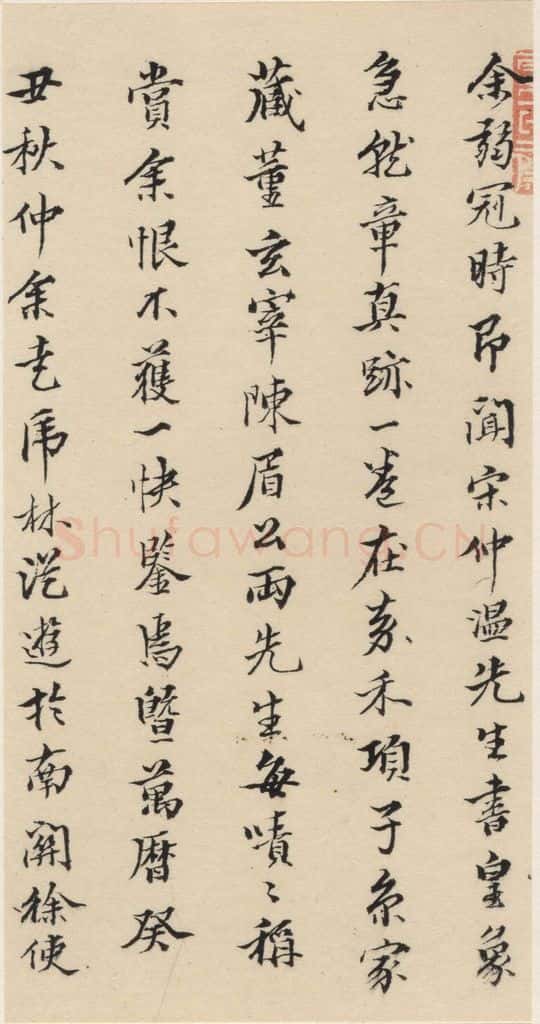 余弱冠時即聞宋仲温先生書皇象
急就章真跡一卷在嘉禾項子京家
藏董玄宰陳眉公兩先生每嘖〻稱
賞余恨不獲一快鑒焉暨萬曆癸
丑秋仲余走虎林從遊於南關徐使
Shufawang.CN